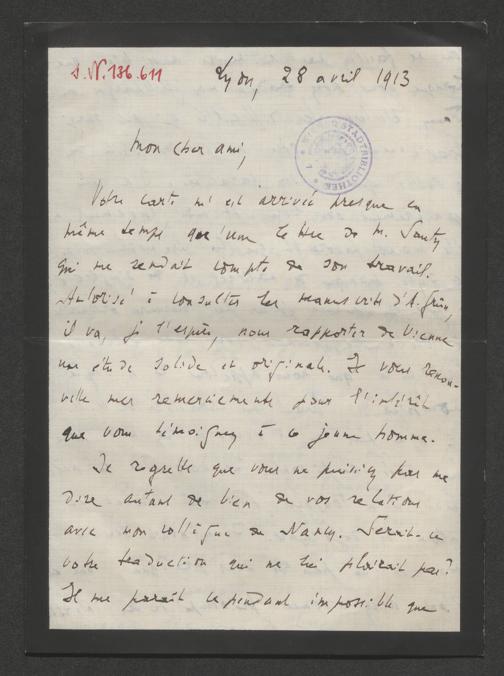 I.N. 136.611
Lyon, 28 avril 1913
STADTBIBLIOTHEK
Mon cher ami,
Votre carte m'est arrivée presque en
même temps que l'une lettre de M.
qui me rendait compte de son travail.
Autorisé à consulter les manuscrits d'A. Grün,
il va, je l'espère, nous rapporter de Vienne
une étude solide et originale. Je vous renou-
velle mes remerciements pour l'intérêt
que vous témoignez à ce jeune homme.
Je regrette que vous ne puissiez pas me
dire autant de bien de vos relations
avec mon collègue de Nancy. Serait-ce
votre traduction qui ne lui plairait pas?
Il me paraît cependant impossible que